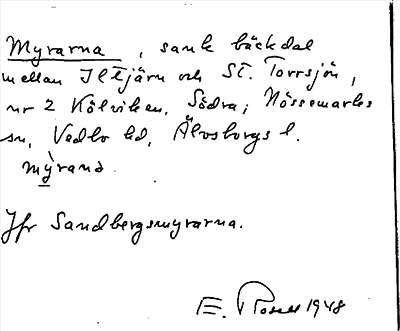 Myrarna, sank bäckdal
mellan Iltjärn och St. Torrsjön,
nr 2 Kölviken, Södra; Nössemarks
sn, Vedbo hd, Älvsborgs l.
mỳrana.
Jfr Sandbergsmyrarna.
E. Rosell 1948